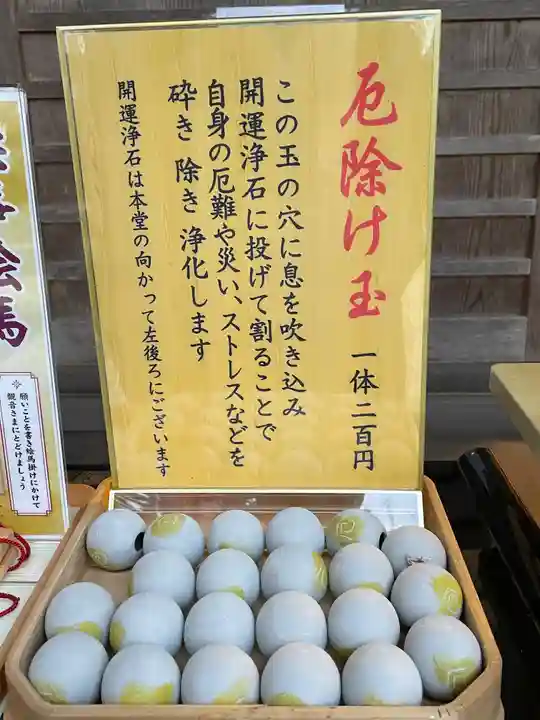 厄除け玉 一体二百円
この玉の穴に息を吹き込み
開運浄石に投げて割ることで
自身の厄難や災い、ストレスなどを
砕き 除き 浄化します
開運浄石は本堂の向かって左後ろにございます
絵馬
願いごとを書き絵馬掛けにかけて
観音さまにとどけましょう